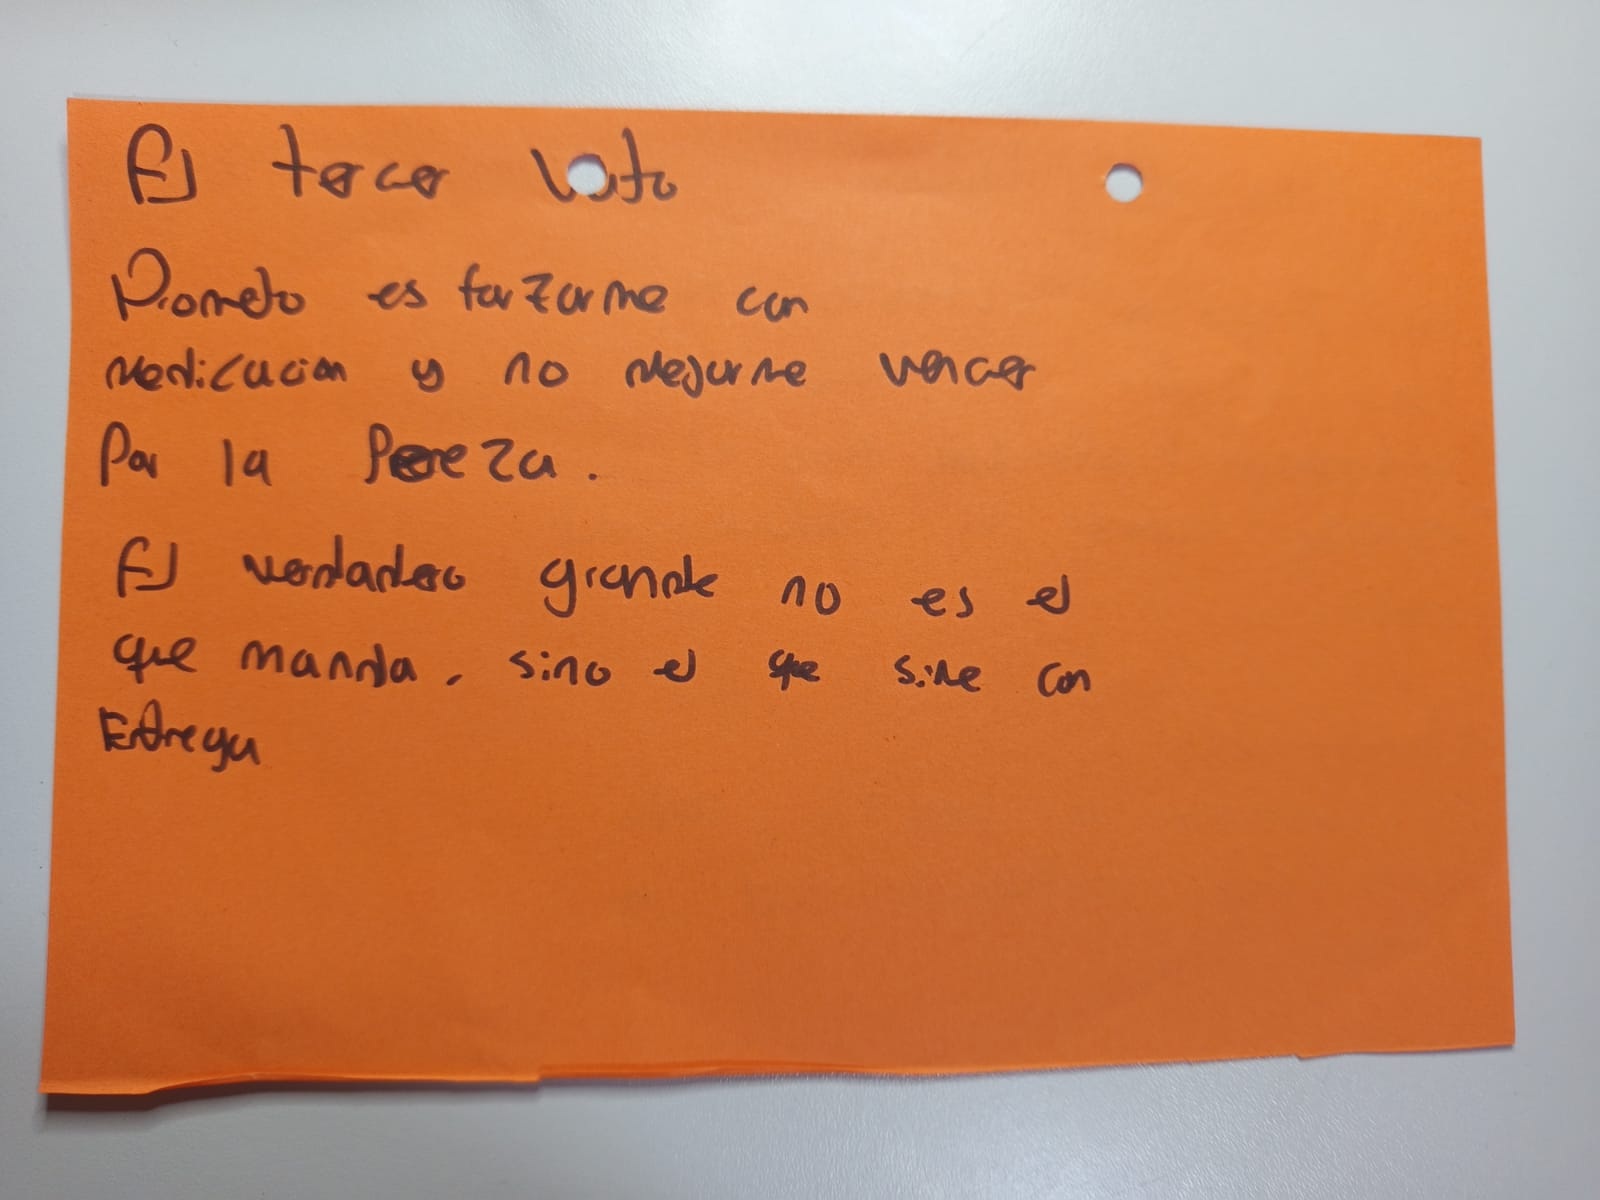 El tercer Voto
Prometo es forzarme con
dedicacion y no dejarme vencer
Por la Pereza.
El verdadero grande no es el
que manda, sino el que sirve con
Entrega